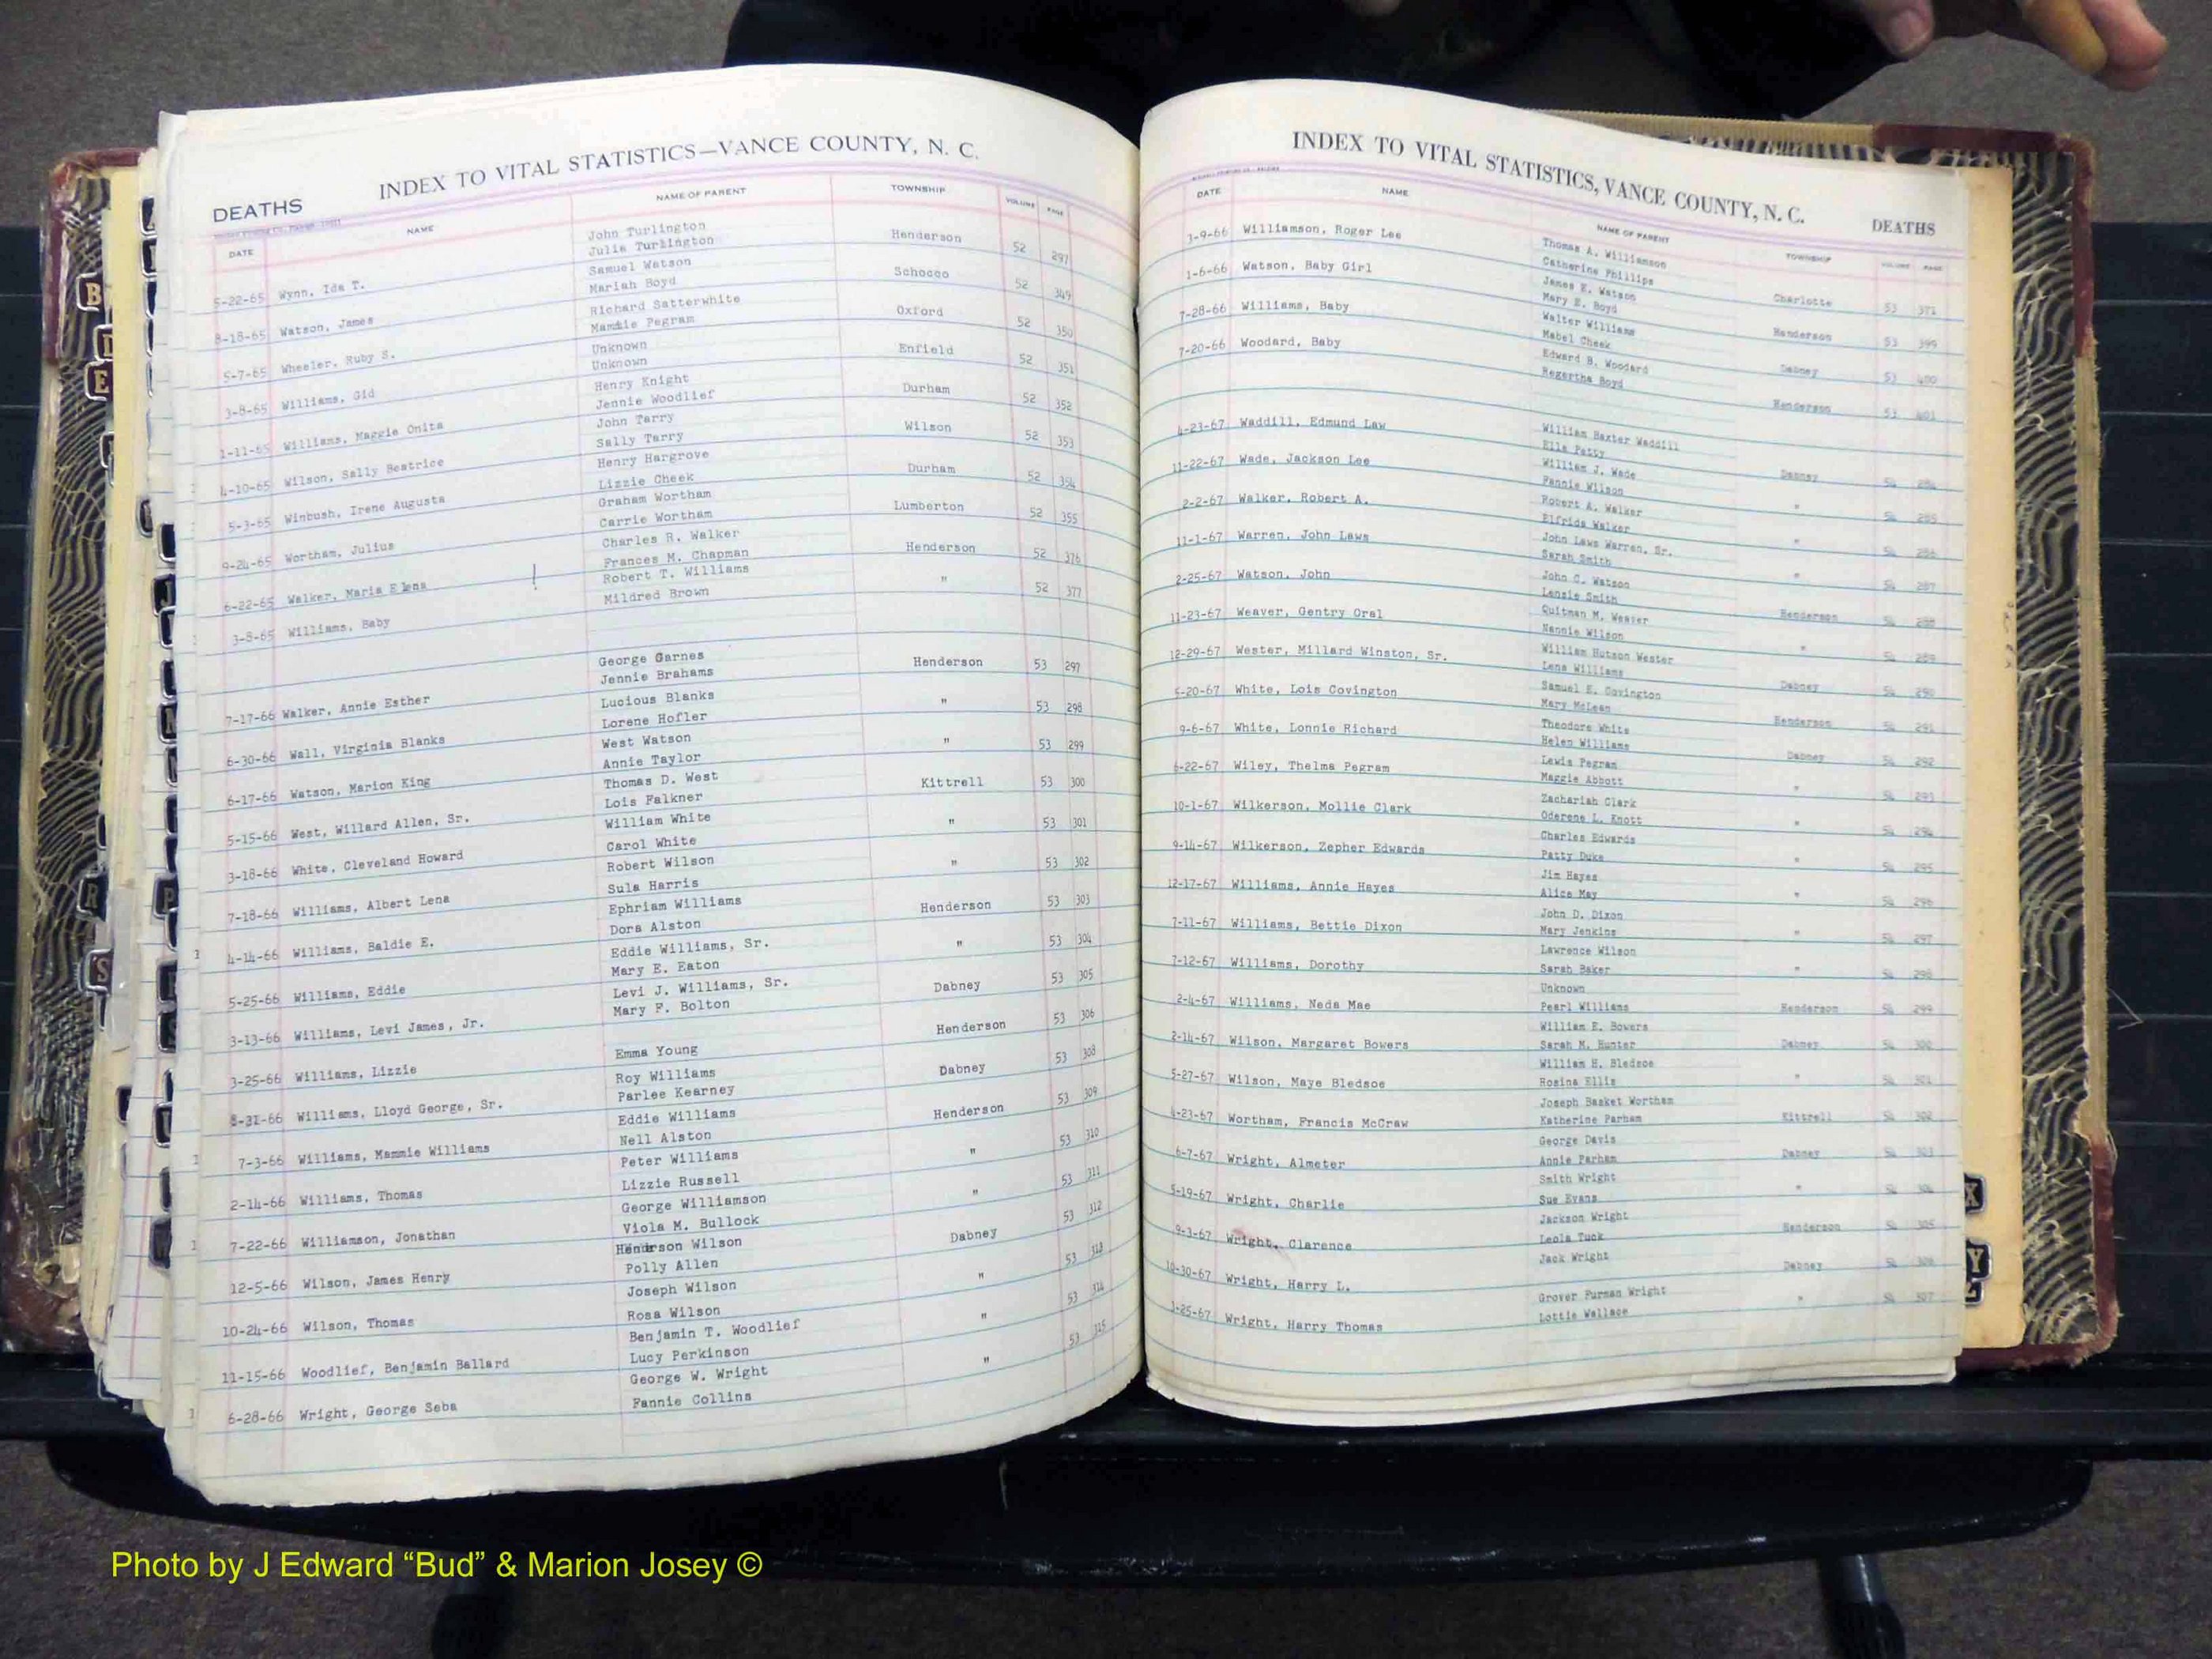 DEATHS
INDEX TO VITAL STATISTICS—VANCE COUNTY, N. C.
DATE NAME NAME OF PARENT TOWNSHIP VOLUME PAGE
5-22-65 Wynn, Ida T. John Turlington Henderson 52 297
Julia Turlington
8-18-65 Watson, James Samuel Watson Schocco 52 349
Mariah Boyd
5-7-65 Wheeler, Ruby S. Richard Satterwhite Oxford 52 350
Mammie Pegram
3-8-65 Williams, Gid Unknown Enfield 52 351
Unknown
1-11-65 Williams, Maggie Onita Henry Knight Durham 52 352
Jennie Woodlief
4-10-65 Wilson, Sally Beatrice John Tarry Wilson 52 353
Sally Tarry
5-3-65 Winbush, Irene Augusta Henry Hargrove Durham 52 354
Lizzie Cheek
9-24-65 Wortham, Julius Graham Wortham Lumberton 52 355
Carrie Wortham
6-22-65 Walker, Maria Elena Charles R. Walker Henderson 52 376
Frances M. Chapman
3-8-65 Williams, Baby Robert T. Williams " 52 377
Mildred Brown
7-17-66 Walker, Annie Esther George Garnes Henderson 53 297
Jennie Brahams
6-30-66 Wall, Virginia Blanks Lucious Blanks " 53 298
Lorene Hofler
6-17-66 Watson, Marion King West Watson " 53 299
Annie Taylor
5-15-66 West, Willard Allen, Sr. Thomas D. West Kittrell 53 300
Lois Falkner
3-18-66 White, Cleveland Howard William White " 53 301
Carol White
7-18-66 Williams, Albert Lena Robert Wilson " 53 302
Sula Harris
4-14-66 Williams, Baldie E. Ephriam Williams Henderson 53 303
Dora Alston
5-25-66 Williams, Eddie Eddie Williams, Sr. " 53 304
Mary E. Eaton
3-13-66 Williams, Levi James, Jr. Levi J. Williams, Sr. Dabney 53 305
Mary F. Bolton
3-25-66 Williams, Lizzie Emma Young Henderson 53 306
8-31-66 Williams, Lloyd George, Sr. Roy Williams Dabney 53 308
Parlee Kearney
7-3-66 Williams, Mammie Williams Eddie Williams Henderson 53 309
Nell Alston
2-14-66 Williams, Thomas Peter Williams " 53 310
Lizzie Russell
7-22-66 Williamson, Jonathan George Williamson " 53 311
Viola M. Bullock
12-5-66 Wilson, James Henry Henderson Wilson Dabney 53 312
Polly Allen
10-24-66 Wilson, Thomas Joseph Wilson " 53 313
Rosa Wilson
11-15-66 Woodlief, Benjamin Ballard Benjamin T. Woodlief " 53 314
Lucy Perkinson
6-28-66 Wright, George Seba George W. Wright " 53 315
Fannie Collins
INDEX TO VITAL STATISTICS, VANCE COUNTY, N. C.
DEATHS
DATE NAME NAME OF PARENT TOWNSHIP VOLUME PAGE
3-9-66 Williamson, Roger Lee Thomas A. Williamson Charlotte 53 371
Catherine Phillips
1-6-66 Watson, Baby Girl James E. Watson Henderson 53 399
Mary E. Boyd
7-28-66 Williams, Baby Walter Williams Dabney 53 400
Mabel Cheek
7-20-66 Woodard, Baby Edward B. Woodard Henderson 53 401
Regertha Boyd
4-23-67 Waddill, Edmund Law William Baxter Waddill Dabney 54 284
Ella Petty
11-22-67 Wade, Jackson Lee William J. Wade " 54 285
Fannie Wilson
2-2-67 Walker, Robert A. Robert A. Walker " 54 286
Elfrida Walker
11-1-67 Warren, John Laws John Laws Warren, Sr. " 54 287
Sarah Smith
2-25-67 Watson, John John C. Watson Henderson 54 288
Lensie Smith
11-23-67 Weaver, Gentry Oral Quitman M. Weaver " 54 289
Nannie Wilson
12-29-67 Wester, Millard Winston, Sr. William Hutson Wester Dabney 54 290
Lena Williams
5-20-67 White, Lois Covington Samuel E. Covington Henderson 54 291
Mary McLean
9-6-67 White, Lonnie Richard Theodore White Dabney 54 292
Helen Williams
6-22-67 Wiley, Thelma Pegram Lewis Pegram " 54 293
Maggie Abbott
10-1-67 Wilkerson, Mollie Clark Zachariah Clark " 54 294
Oderene L. Knott
9-14-67 Wilkerson, Zepher Edwards Charles Edwards " 54 295
Patty Duke
12-17-67 Williams, Annie Hayes Jim Hayes " 54 296
Alice May
7-11-67 Williams, Bettie Dixon John D. Dixon " 54 297
Mary Jenkins
7-12-67 Williams, Dorothy Lawrence Wilson " 54 298
Sarah Baker
2-4-67 Williams, Neda Mae Unknown Henderson 54 299
Pearl Williams
2-14-67 Wilson, Margaret Bowers William E. Bowers Dabney 54 300
Sarah M. Hunter
5-27-67 Wilson, Maye Bledsoe William H. Bledsoe " 54 301
Rosina Ellis
4-23-67 Wortham, Francis McCraw Joseph Basket Wortham Kittrell 54 302
Katherine Parham
6-7-67 Wright, Almeter George Davis Dabney 54 303
Annie Parham
5-19-67 Wright, Charlie Smith Wright " 54 304
Sue Evans
9-3-67 Wright, Clarence Jackson Wright Henderson 54 305
Leola Tuck
10-30-67 Wright, Harry L. Jack Wright Dabney 54 306
3-25-67 Wright, Harry Thomas Grover Furman Wright " 54 307
Lottie Wallace
Photo by J Edward “Bud” & Marion Josey ©